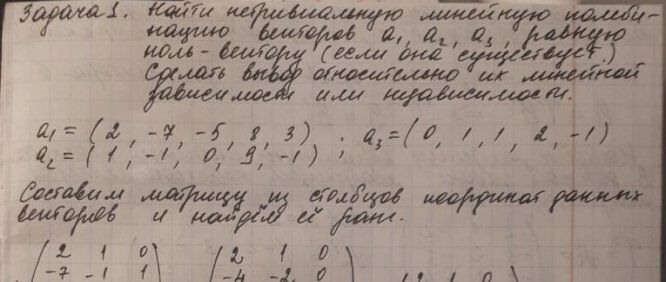 Задача 1. Найти нетривиальную линейную комби-
нацию векторов a₁, a₂, a₃, равную
ноль-вектору (если она существует.)
Сделать вывод относительно их линейной
зависимости или независимости.
a₁ = (2, -7, -5, 8, 3) ; a₃ = (0, 1, 1, 2, -1)
a₂ = (1, -1, 0, 9, -1) ;
Составим матрицу из столбцов координат данных
векторов и найдём её ранг.
2 1 0 2 1 0
-7 -1 1 -4 -2 0